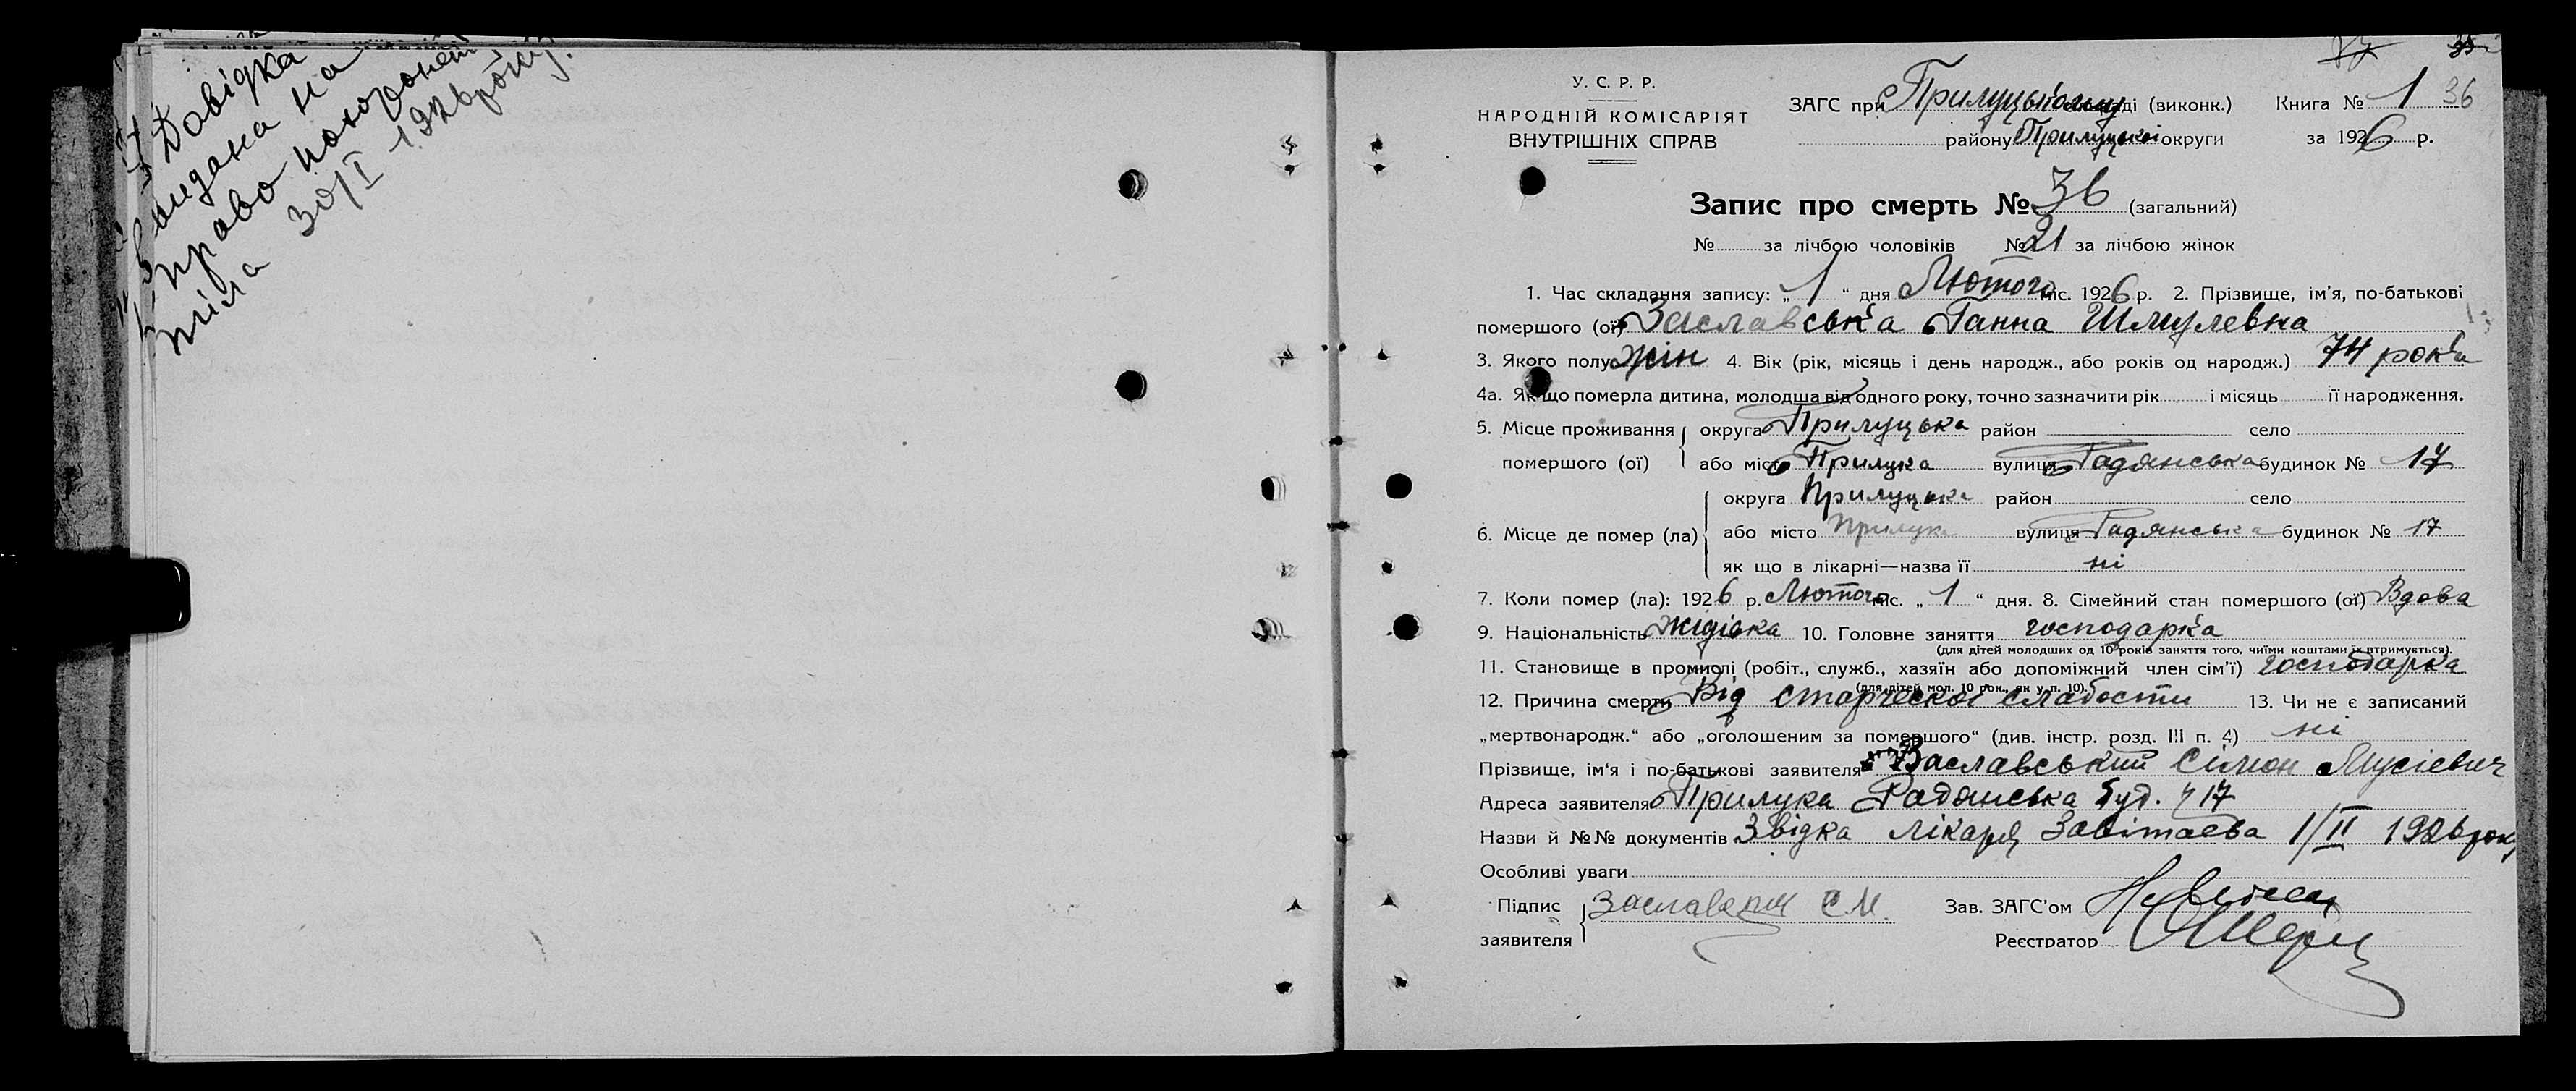 Довідка
видана на
право похоронен
тіла 30/I 1926 року.
36
У. С. Р. Р.
НАРОДНІЙ КОМІСАРІЯТ
ВНУТРІШНІХ СПРАВ
ЗАГС при Прилуцькому (виконк.) Книга № 1
району Прилуцької округи за 1926 р.
Запис про смерть № 36 (загальний)
№ за лічбою чоловіків № 21 за лічбою жінок
1. Час складання запису: „ 1 “ дня Лютого міс. 1926 р. 2. Прізвище, ім'я, по-батькові
помершого (ої) Заславська Ганна Шмулевна
3. Якого полу жін 4. Вік (рік, місяць і день народж., або років од народж.) 74 рока
4а. Як що померла дитина, молодша від одного року, точно зазначити рік і місяць її народження.
5. Місце проживання округа Прилуцька район село
помершого (ої) або місто Прилука вулиця Радянська будинок № 17
округа Прилуцька район село
6. Місце де помер (ла) або місто Прилука вулиця Радянська будинок № 17
як що в лікарні—назва її ні
7. Коли помер (ла): 1926 р. Лютого міс. „ 1 “ дня. 8. Сімейний стан помершого (ої) Вдова
9. Національність жидівка 10. Головне заняття господарка
(для дітей молодших од 10 років заняття того, чиїми коштами їх втримується).
11. Становище в промислі (робіт., служб., хазяїн або допоміжний член сім'ї) господарка
(для дітей мол. 10 рок., як у п. 10).
12. Причина смерти Від старческої слабости 13. Чи не є записаний
„мертвонародж.“ або „оголошеним за помершого“ (див. інстр. розд. III п. 4) ні
Прізвище, ім'я і по-батькові заявителя Заславський Сімон Мусієвич
Адреса заявителя Прилука Радянська буд. ч 17
Назви й №№ документів Звідка лікаря 1/II 1926 року
Особливі уваги
Підпис Заславский С М.
заявителя
Зав. ЗАГС'ом
Реєстратор